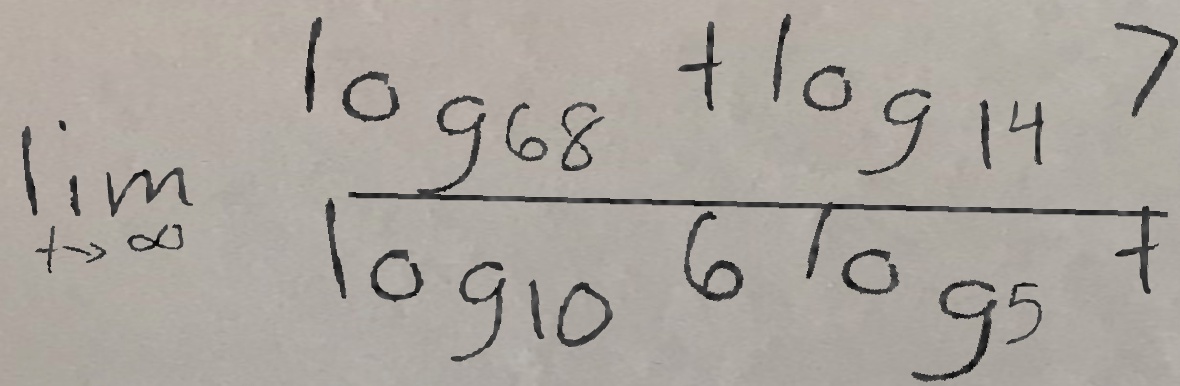 \lim_{t \to \infty} \frac{\log_{68} t \log_{14} 7}{\log_{10} 6 \log_{5} t}